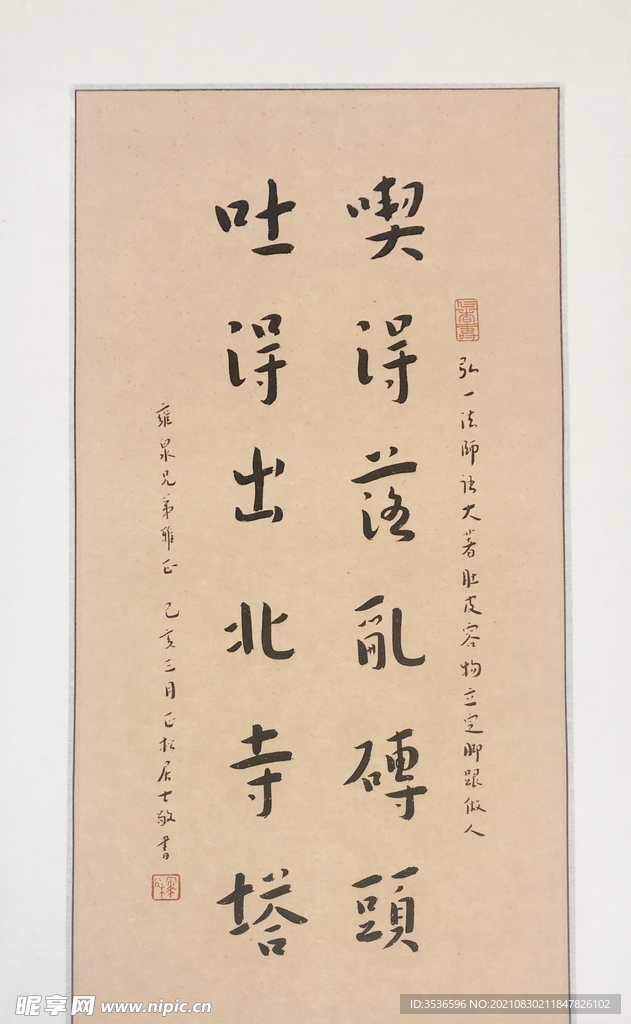 弘一法師語大著肚皮容物立定脚跟做人
喫得落亂磚頭
吐得出北寺塔
雍泉兄弟雅正 己亥三月正松居士敬書
昵享网 www.nipic.cn
ID:3536596 NO:20210830211847826102